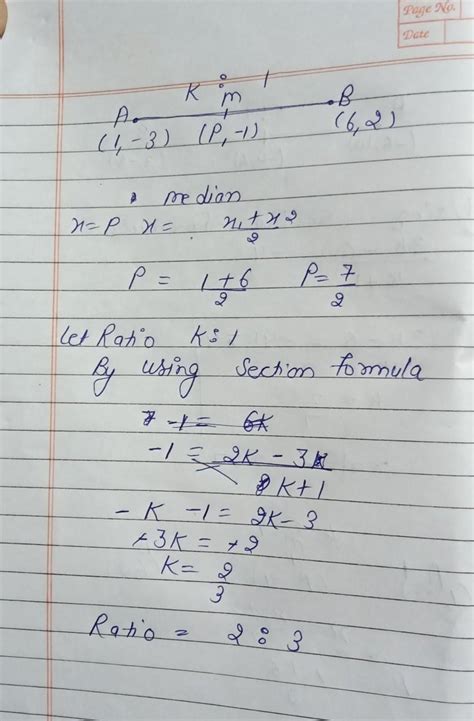 Page No.
Date
K : 1
A m B
(1, -3) (P, -1) (6, 2)
median
x = P x = x1 + x2 / 2
P = 1 + 6 / 2 P = 7 / 2
Let Ratio K : 1
By using Section formula
-1 = 6K
-1 = 2K - 3 / K + 1
- K - 1 = 2K - 3
-3K = -2
K = 2 / 3
Ratio = 2 : 3